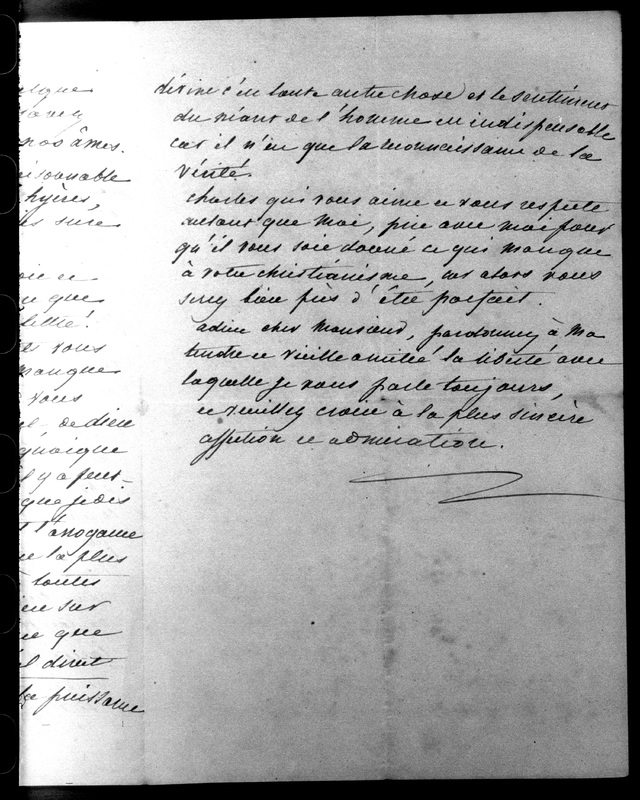 elque
savez
nos âmes.
raisonnable
hyères,
es sure
oie et
ce que
bettié!
et vous
manque
vous
il de dieu
quoique
il y a peut-
que je dis
t l'arrogance
ne la plus
à toutes
ieu sur
ce que
il dirait
la puissance
divine c'en toute autre chose et le sentiment
du néant de l'homme en indispensable
car il n'en que la connaissance de la
vérité.
charles qui vous aime et vous respecte
autant que moi, prie avec moi pour
qu'il vous soit donné ce qui manque
à votre christianisme, car alors vous
serez bien près d'être parfait.
adieu cher Monsieur, pardonnez à ma
tendre et vieille amitié la liberté avec
laquelle je vous parle toujours,
et veuillez croire à la plus sincère
affection et admiration.